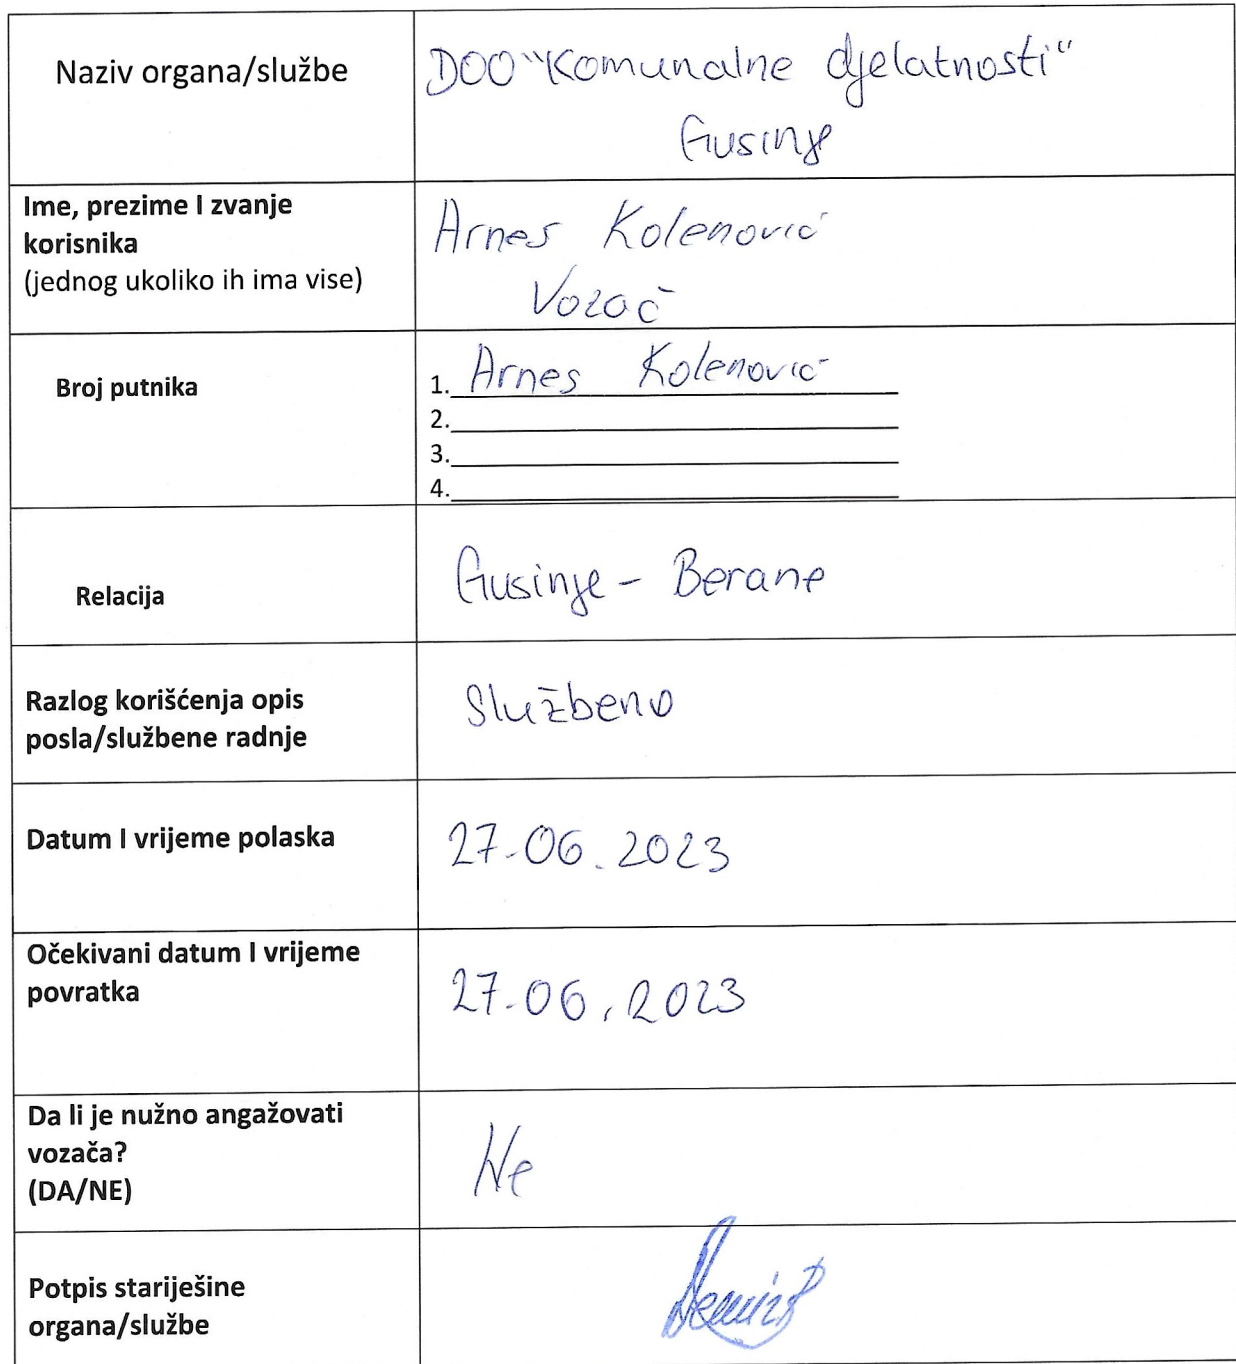 Naziv organa/službe
DOO "Komunalne djelatnosti"
Gusinje
Ime, prezime I zvanje
korisnika
(jednog ukoliko ih ima vise)
Arnes Kolenović
Vozač
Broj putnika
1. Arnes Kolenović
2.
3.
4.
Relacija
Gusinje - Berane
Razlog korišćenja opis
posla/službene radnje
Službeno
Datum I vrijeme polaska
27.06.2023
Očekivani datum I vrijeme
povratka
27.06.2023
Da li je nužno angažovati
vozača?
(DA/NE)
Ne
Potpis starješine
organa/službe